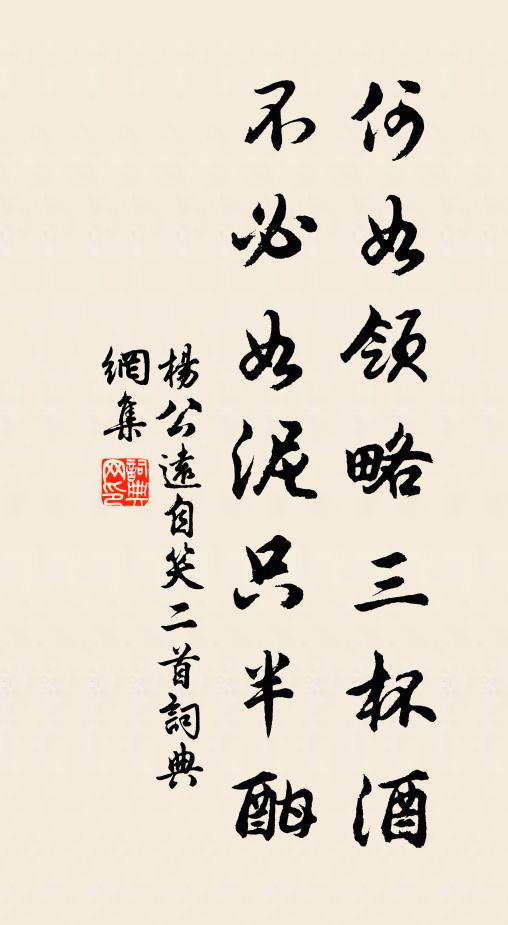 何如領略三杯酒
不必如泥只半酣
楊公遠自笑二首詞典
網集
詞典网印